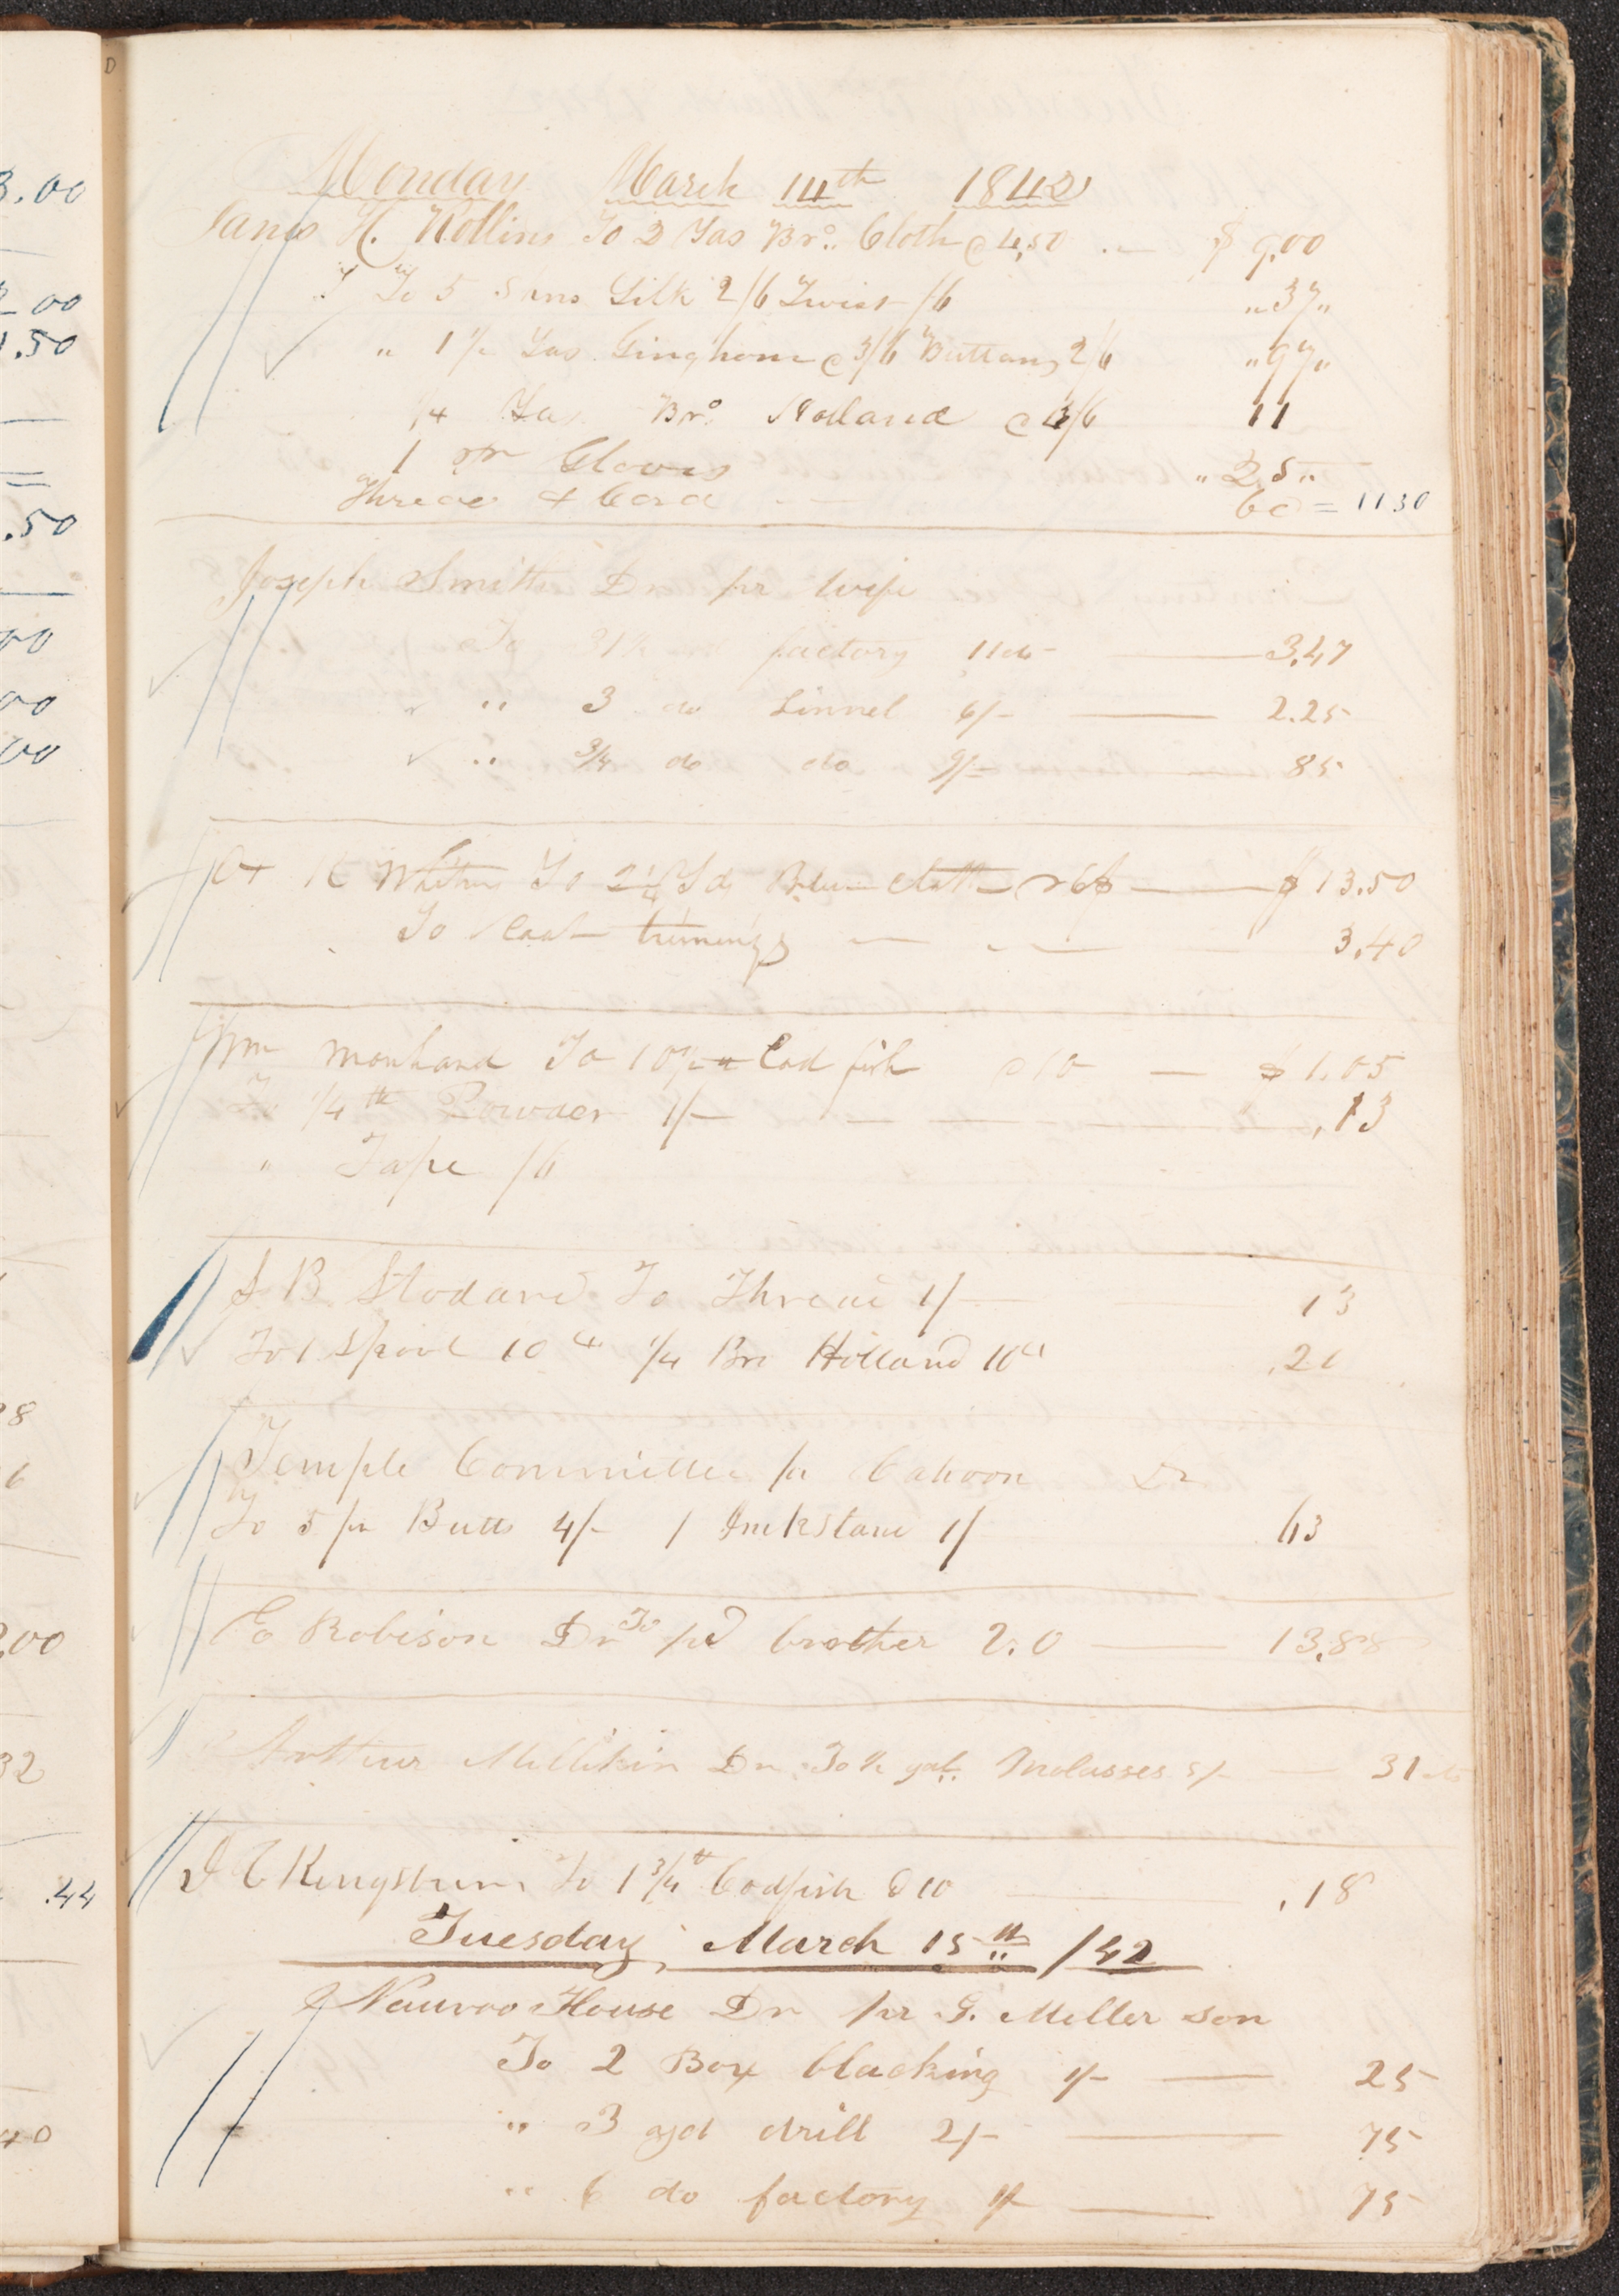 3.00
00
.50
.50
00
00
00
8
6
.00
32
.44
40
Monday March 14th 1842
James H. Rollins To 2 Yds Bro. Cloth @ 4,50 $ 9.00
To 5 Skns Silk 2/6 Twist /6 " 37 "
" 1 1/2 Yds Gingham @ 3/6 Buttons 2/6 " 97 "
1/4 Yd Bro Holland @ 3/6 11
1 pr Gloves " 25 "
Thread & Cord 60 = 1130
Joseph Smith Dr pr wife
To 31 1/2 yd factory 11cts 3.47
" 3 do Linnel 6/- 2.25
" 3/4 do do 9/- 85
N K Whitney To 2 1/4 Yds Blue cloth @ 6$ $ 13.50
To Coat trimings 3.40
Wm Monhard To 10 1/2 # Cod fish @ 10 $ 1.05
To 1/4 th Powder 1/- .13
" Tape /6
S B Stodard To Thread 1/- 13
To 1 Spool 10cts 1/4 Bro Holland 10cts .20
Temple Committee pr Cahoon Dr
To 5 pr Butts 4/- 1 Inkstand 1/ 63
E Robison Dr To pd brother 2.0 13.88
Arthur Millikin Dr To 1/2 gal. Molasses 5/- 31 cts
I C Kingsbury To 1 3/4 # Codfish @ 10 .18
Tuesday March 15th /42
Nauvoo House Dr pr G. Miller son
To 2 Box blacking 1/- 25
" 3 yd drill 2/- 75
" 6 do factory 1/- 75